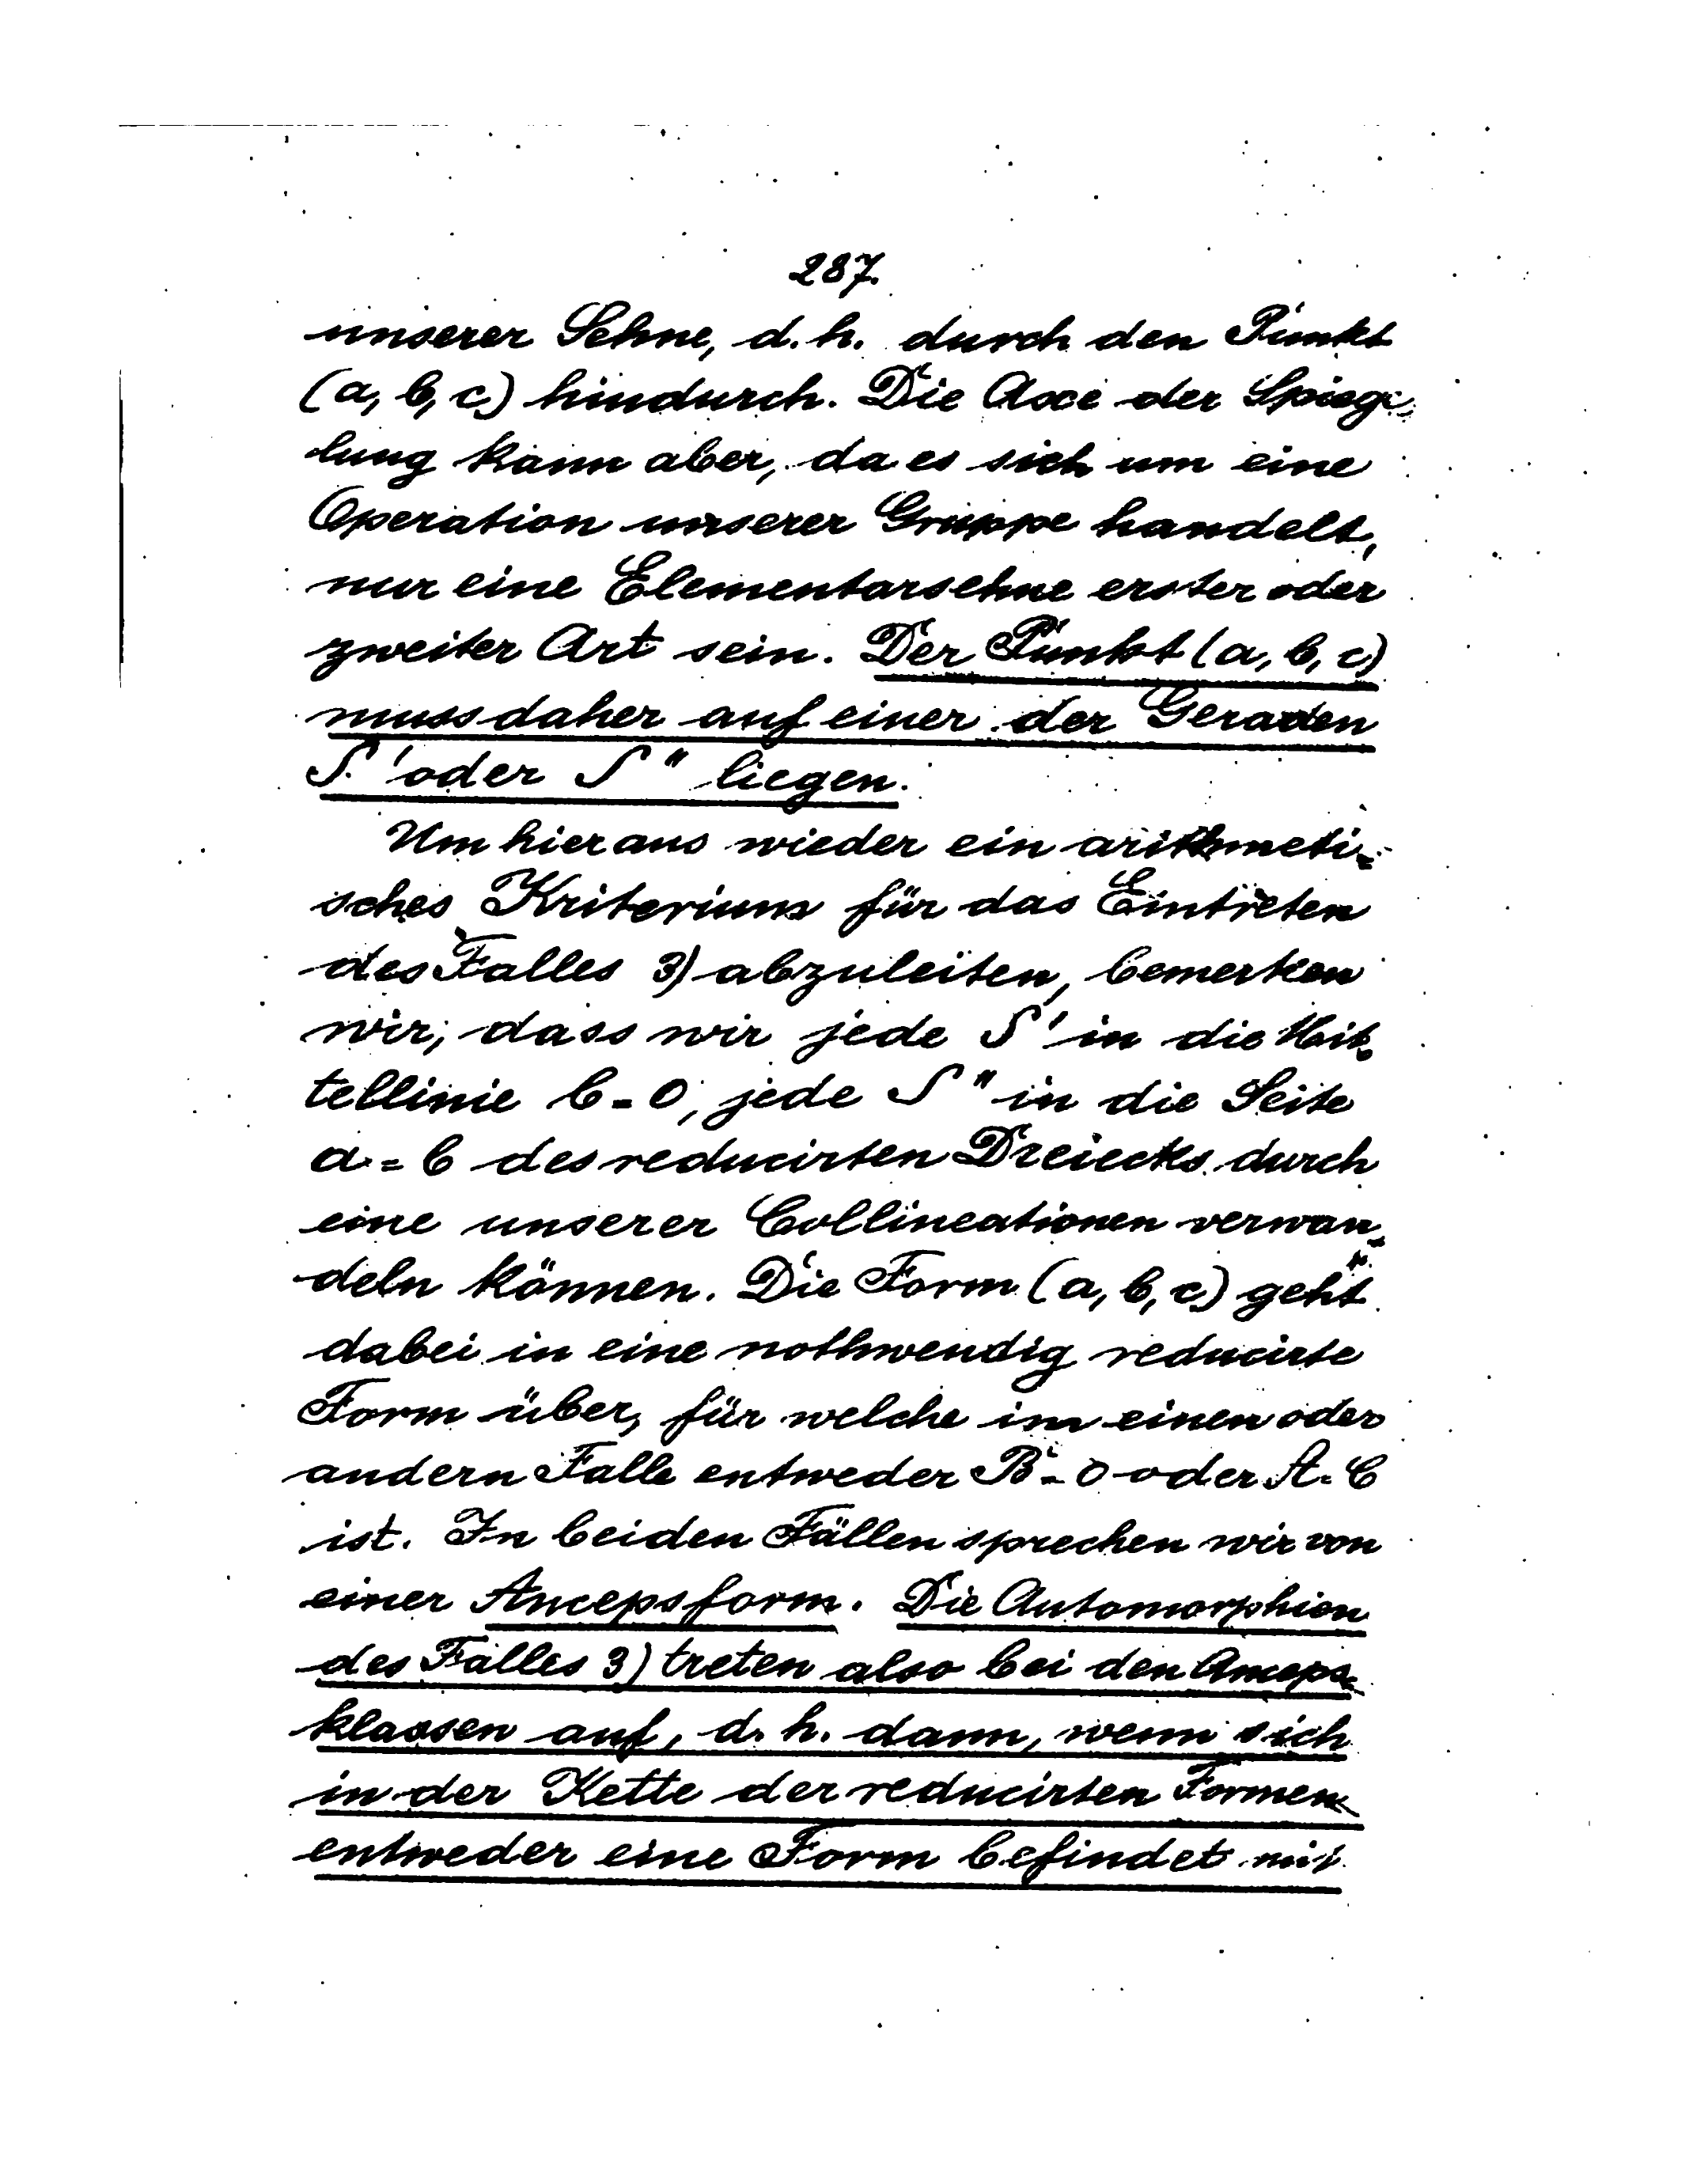 287.
unserer Sehne, d. h. durch den Punkt
(a, b, c) hindurch. Die Axe der Spieg-
lung kann aber, da es sich um eine
Operation unserer Gruppe handelt,
nur eine Elementarsehne erster oder
zweiter Art sein. Der Punkt (a, b, c)
muss daher auf einer der Geraden
S' oder S" liegen.
Um hieraus wieder ein arithmeti-
sches Kriterium für das Eintreten
des Falles 3) abzuleiten, bemerken
wir, dass wir jede S' in die Mit-
tellinie b=0, jede S" in die Seite
a=b des reducirten Dreiecks durch
eine unserer Collineationen verwan-
deln können. Die Form (a, b, c) geht
dabei in eine nothwendig reducirte
Form über, für welche im einen oder
andern Falle entweder B=0 oder A=C
ist. In beiden Fällen sprechen wir von
einer Ancepsform. Die Automorphien
des Falles 3) treten also bei den Anceps-
klassen auf, d. h. dann, wenn sich
in der Kette der reducirten Formen
entweder eine Form befindet mit